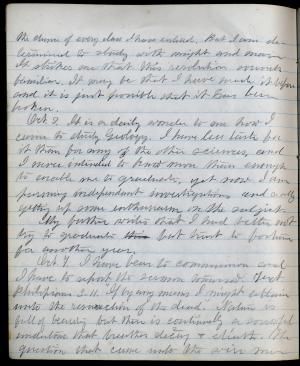 the charm of every class I have entered. But I am de-
termined to study with might and main
It strikes me that this resolution sounds
familiar. It may be that I have made it before
and it is just possible that it has been
broken.
Oct 2. It is a daily wonder to me how I
came to study Geology. I have less taste for
it than for any of the other sciences, and
I never intended to know more than enough
to enable me to graduate, yet now I am
pursuing independent investigations and really
getting up some enthusiasm on the subject.
My father writes that I had better not
try to graduate but trust to fortune
for another year.
Oct 7. I have been to communion and
I have to report the sermon toward. Text
Philippians 3-11. "If by any means I might attain
unto the resurrection of the dead". Nature is
full of beauty but there is continually a mournful
undertone that breathes decay & death. The
question that came unto the